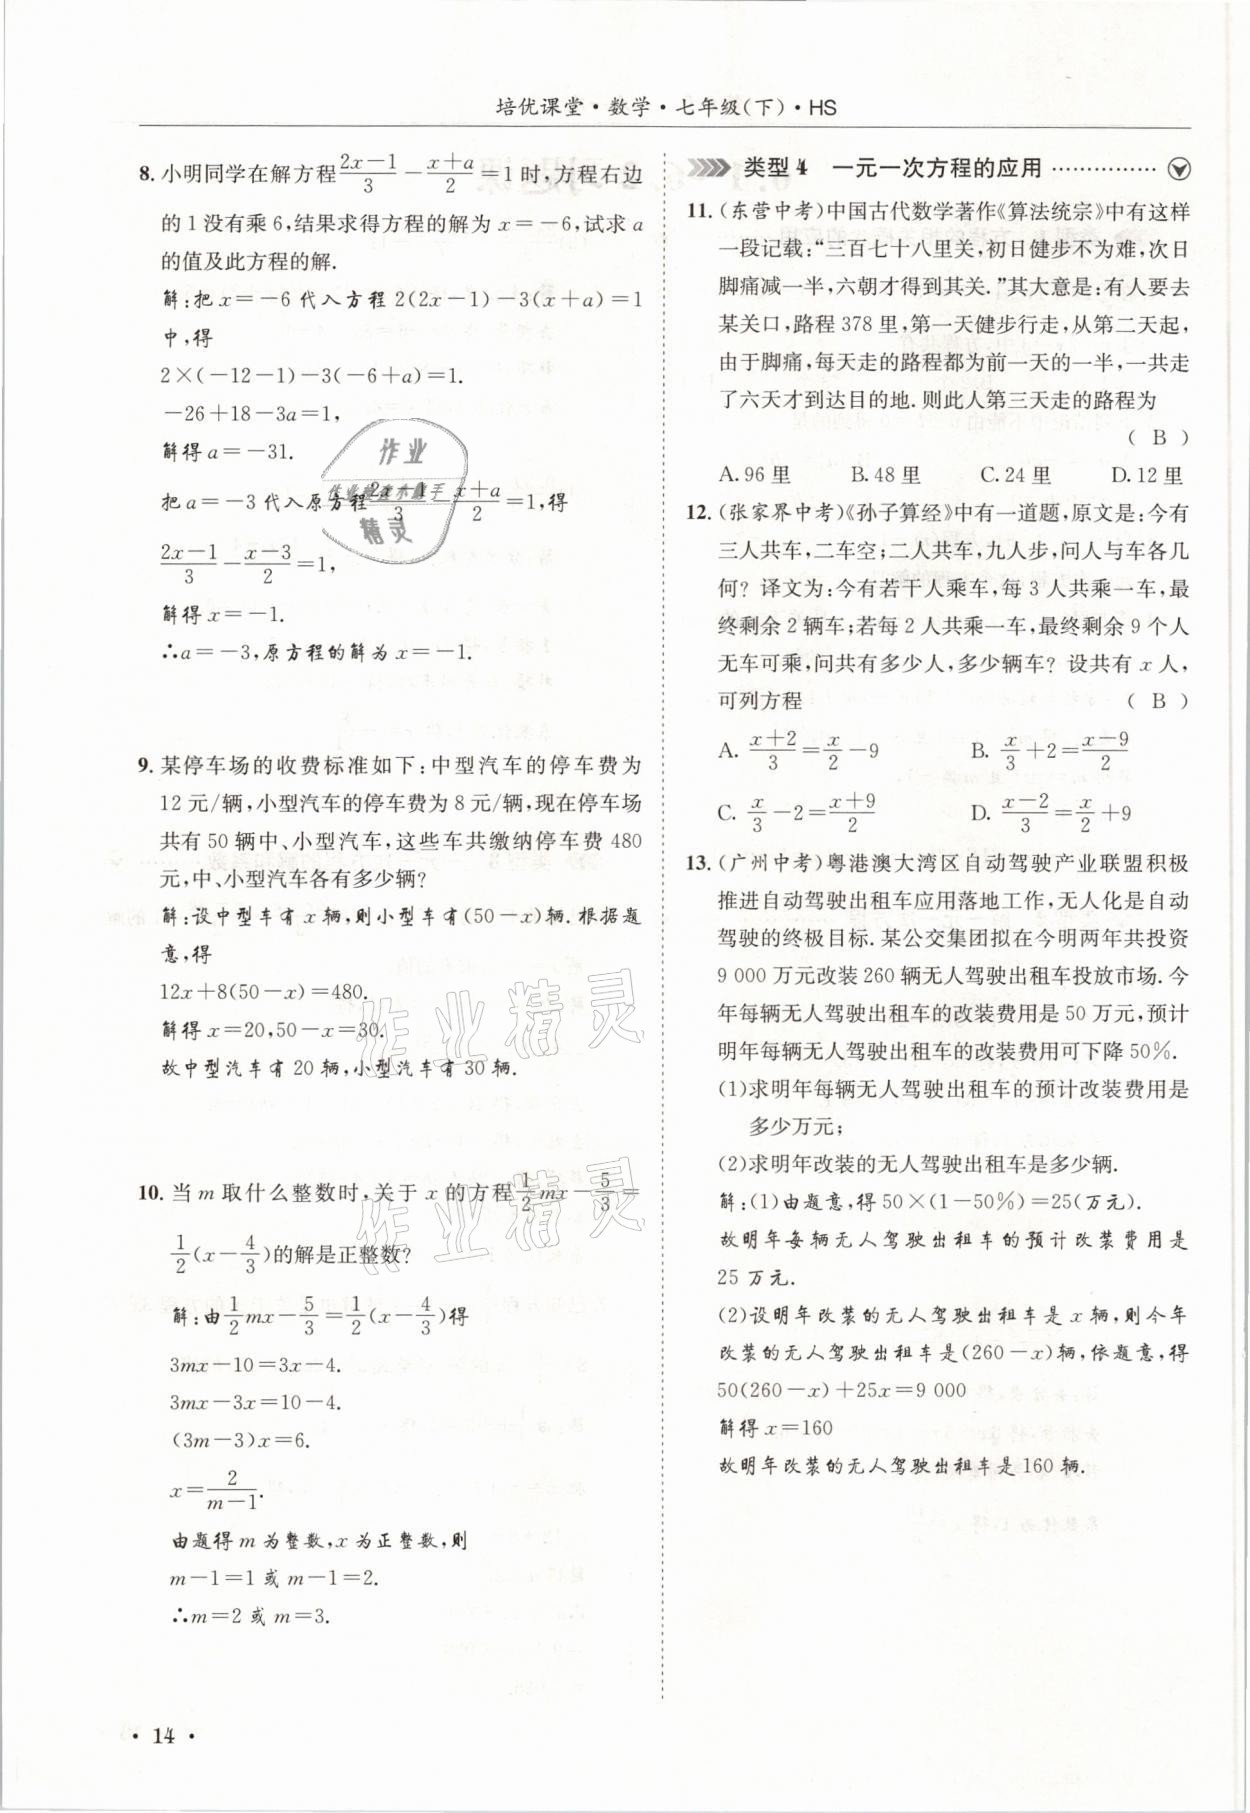 培优课堂·数学·七年级(下)·HS
8. 小明同学在解方程(2x-1)/3-(x+a)/2=1时,方程右边
的1没有乘6,结果求得方程的解为x=-6,试求a
的值及此方程的解.
解:把x=-6代入方程2(2x-1)-3(x+a)=1
中,得
2×(-12-1)-3(-6+a)=1.
-26+18-3a=1,
解得a=-31.
把a=-3代入原方程(2x-1)/3-(x+a)/2=1,得
(2x-1)/3-(x-3)/2=1,
解得x=-1.
∴a=-3,原方程的解为x=-1.
9. 某停车场的收费标准如下:中型汽车的停车费为
12元/辆,小型汽车的停车费为8元/辆,现在停车场
共有50辆中、小型汽车,这些车共缴纳停车费480
元,中、小型汽车各有多少辆?
解:设中型车有x辆,则小型车有(50-x)辆.根据题
意,得
12x+8(50-x)=480.
解得x=20,50-x=30.
故中型汽车有20辆,小型汽车有30辆.
10. 当m取什么整数时,关于x的方程1/2mx-5/3=
1/2(x-4/3)的解是正整数?
解:由1/2mx-5/3=1/2(x-4/3)得
3mx-10=3x-4.
3mx-3x=10-4.
(3m-3)x=6.
x=2/(m-1).
由题得m为整数,x为正整数,则
m-1=1或m-1=2.
∴m=2或m=3.
·14·
类型4 一元一次方程的应用……………
11. (东营中考)中国古代数学著作《算法统宗》中有这样
一段记载:“三百七十八里关,初日健步不为难,次日
脚痛减一半,六朝才得到其关.”其大意是:有人要去
某关口,路程378里,第一天健步行走,从第二天起,
由于脚痛,每天走的路程都为前一天的一半,一共走
了六天才到达目的地.则此人第三天走的路程为
( B )
A. 96里 B. 48里 C. 24里 D. 12里
12. (张家界中考)《孙子算经》中有一道题,原文是:今有
三人共车,二车空;二人共车,九人步,问人与车各几
何? 译文为:今有若干人乘车,每3人共乘一车,最
终剩余2辆车;若每2人共乘一车,最终剩余9个人
无车可乘,问共有多少人,多少辆车? 设共有x人,
可列方程 ( B )
A. (x+2)/3=x/2-9 B. x/3+2=(x-9)/2
C. x/3-2=(x+9)/2 D. (x-2)/3=x/2+9
13. (广州中考)粤港澳大湾区自动驾驶产业联盟积极
推进自动驾驶出租车应用落地工作,无人化是自动
驾驶的终极目标.某公交集团拟在今明两年共投资
9 000万元改装260辆无人驾驶出租车投放市场.今
年每辆无人驾驶出租车的改装费用是50万元,预计
明年每辆无人驾驶出租车的改装费用可下降50%.
(1)求明年每辆无人驾驶出租车的预计改装费用是
多少万元;
(2)求明年改装的无人驾驶出租车是多少辆.
解:(1)由题意,得50×(1-50%)=25(万元).
故明年每辆无人驾驶出租车的预计改装费用是
25万元.
(2)设明年改装的无人驾驶出租车是x辆,则今年
改装的无人驾驶出租车是(260-x)辆,依题意,得
50(260-x)+25x=9 000
解得x=160
故明年改装的无人驾驶出租车是160辆.
作业
精灵
作业精灵
作业精灵